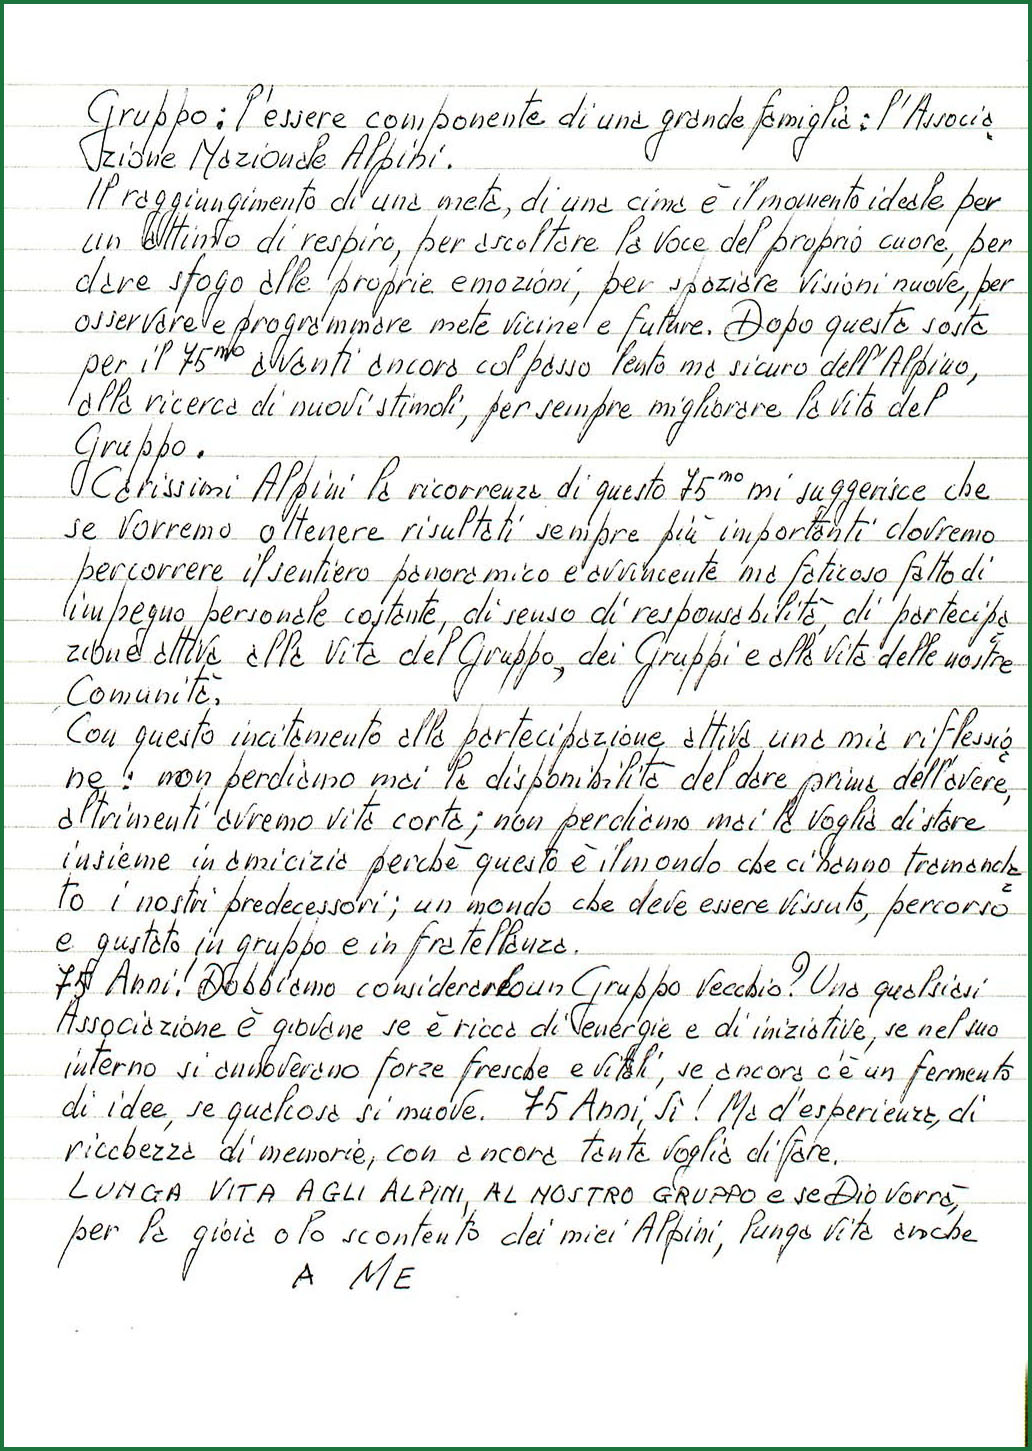 Gruppo: l'essere componente di una grande famiglia: l'Associa
zione Nazionale Alpini.
Il raggiungimento di una meta, di una cima è il momento ideale per
un attimo di respiro, per ascoltare la voce del proprio cuore, per
dare sfogo alle proprie emozioni, per spaziare visioni nuove, per
osservare e programmare mete vicine e future. Dopo questa sosta
per il 75mo avanti ancora col passo lento ma sicuro dell'Alpino,
alla ricerca di nuovi stimoli, per sempre migliorare la vita del
Gruppo.
Carissimi Alpini la ricorrenza di questo 75mo mi suggerisce che
se vorremo ottenere risultati sempre più importanti dovremo
percorrere il sentiero panoramico e avvincente ma faticoso fatto di
impegno personale costante, di senso di responsabilità, di partecipa
zione attiva alla vita del Gruppo, dei Gruppi e alla vita delle nostre
Comunità.
Con questo incitamento alla partecipazione attiva una mia riflessio
ne: non perdiamo mai la disponibilità del dare prima dell'avere,
altrimenti avremo vita corta; non perdiamo mai la voglia di stare
insieme in amicizia perchè questo è il mondo che ci hanno tramanda
to i nostri predecessori; un mondo che deve essere vissuto, percorso
e gustato in gruppo e in fratellanza.
75 Anni! Dobbiamo considerarlo un Gruppo vecchio? Una qualsiasi
Associazione è giovane se è ricca di energie e di iniziative, se nel suo
interno si annoverano forze fresche e vitali, se ancora c'è un fermento
di idee, se qualcosa si muove. 75 Anni, sì! Ma d'esperienza, di
ricchezza di memorie, con ancora tanta voglia di fare.
LUNGA VITA AGLI ALPINI, AL NOSTRO GRUPPO e se Dio vorrà,
per la gioia o lo scontento dei miei Alpini, lunga vita anche
A ME